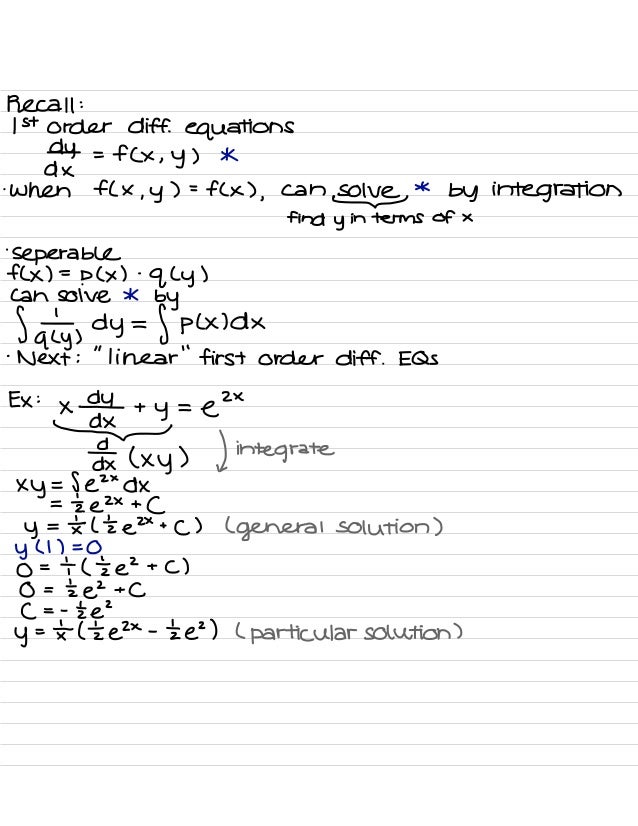 Recall:
1st order diff. equations
dy/dx = f(x, y) *
·when f(x, y) = f(x), can solve * by integration
find y in terms of x
·seperable
f(x) = p(x) · q(y)
can solve * by
∫ 1/q(y) dy = ∫ p(x)dx
·Next: "linear" first order diff. EQs
Ex: x dy/dx + y = e^2x
d/dx (xy) ↓ integrate
xy = ∫e^2x dx
= 1/2 e^2x + C
y = 1/x (1/2 e^2x + C) (general solution)
y(1) = 0
0 = 1/1 (1/2 e^2 + C)
0 = 1/2 e^2 + C
C = - 1/2 e^2
y = 1/x (1/2 e^2x - 1/2 e^2) (particular solution)